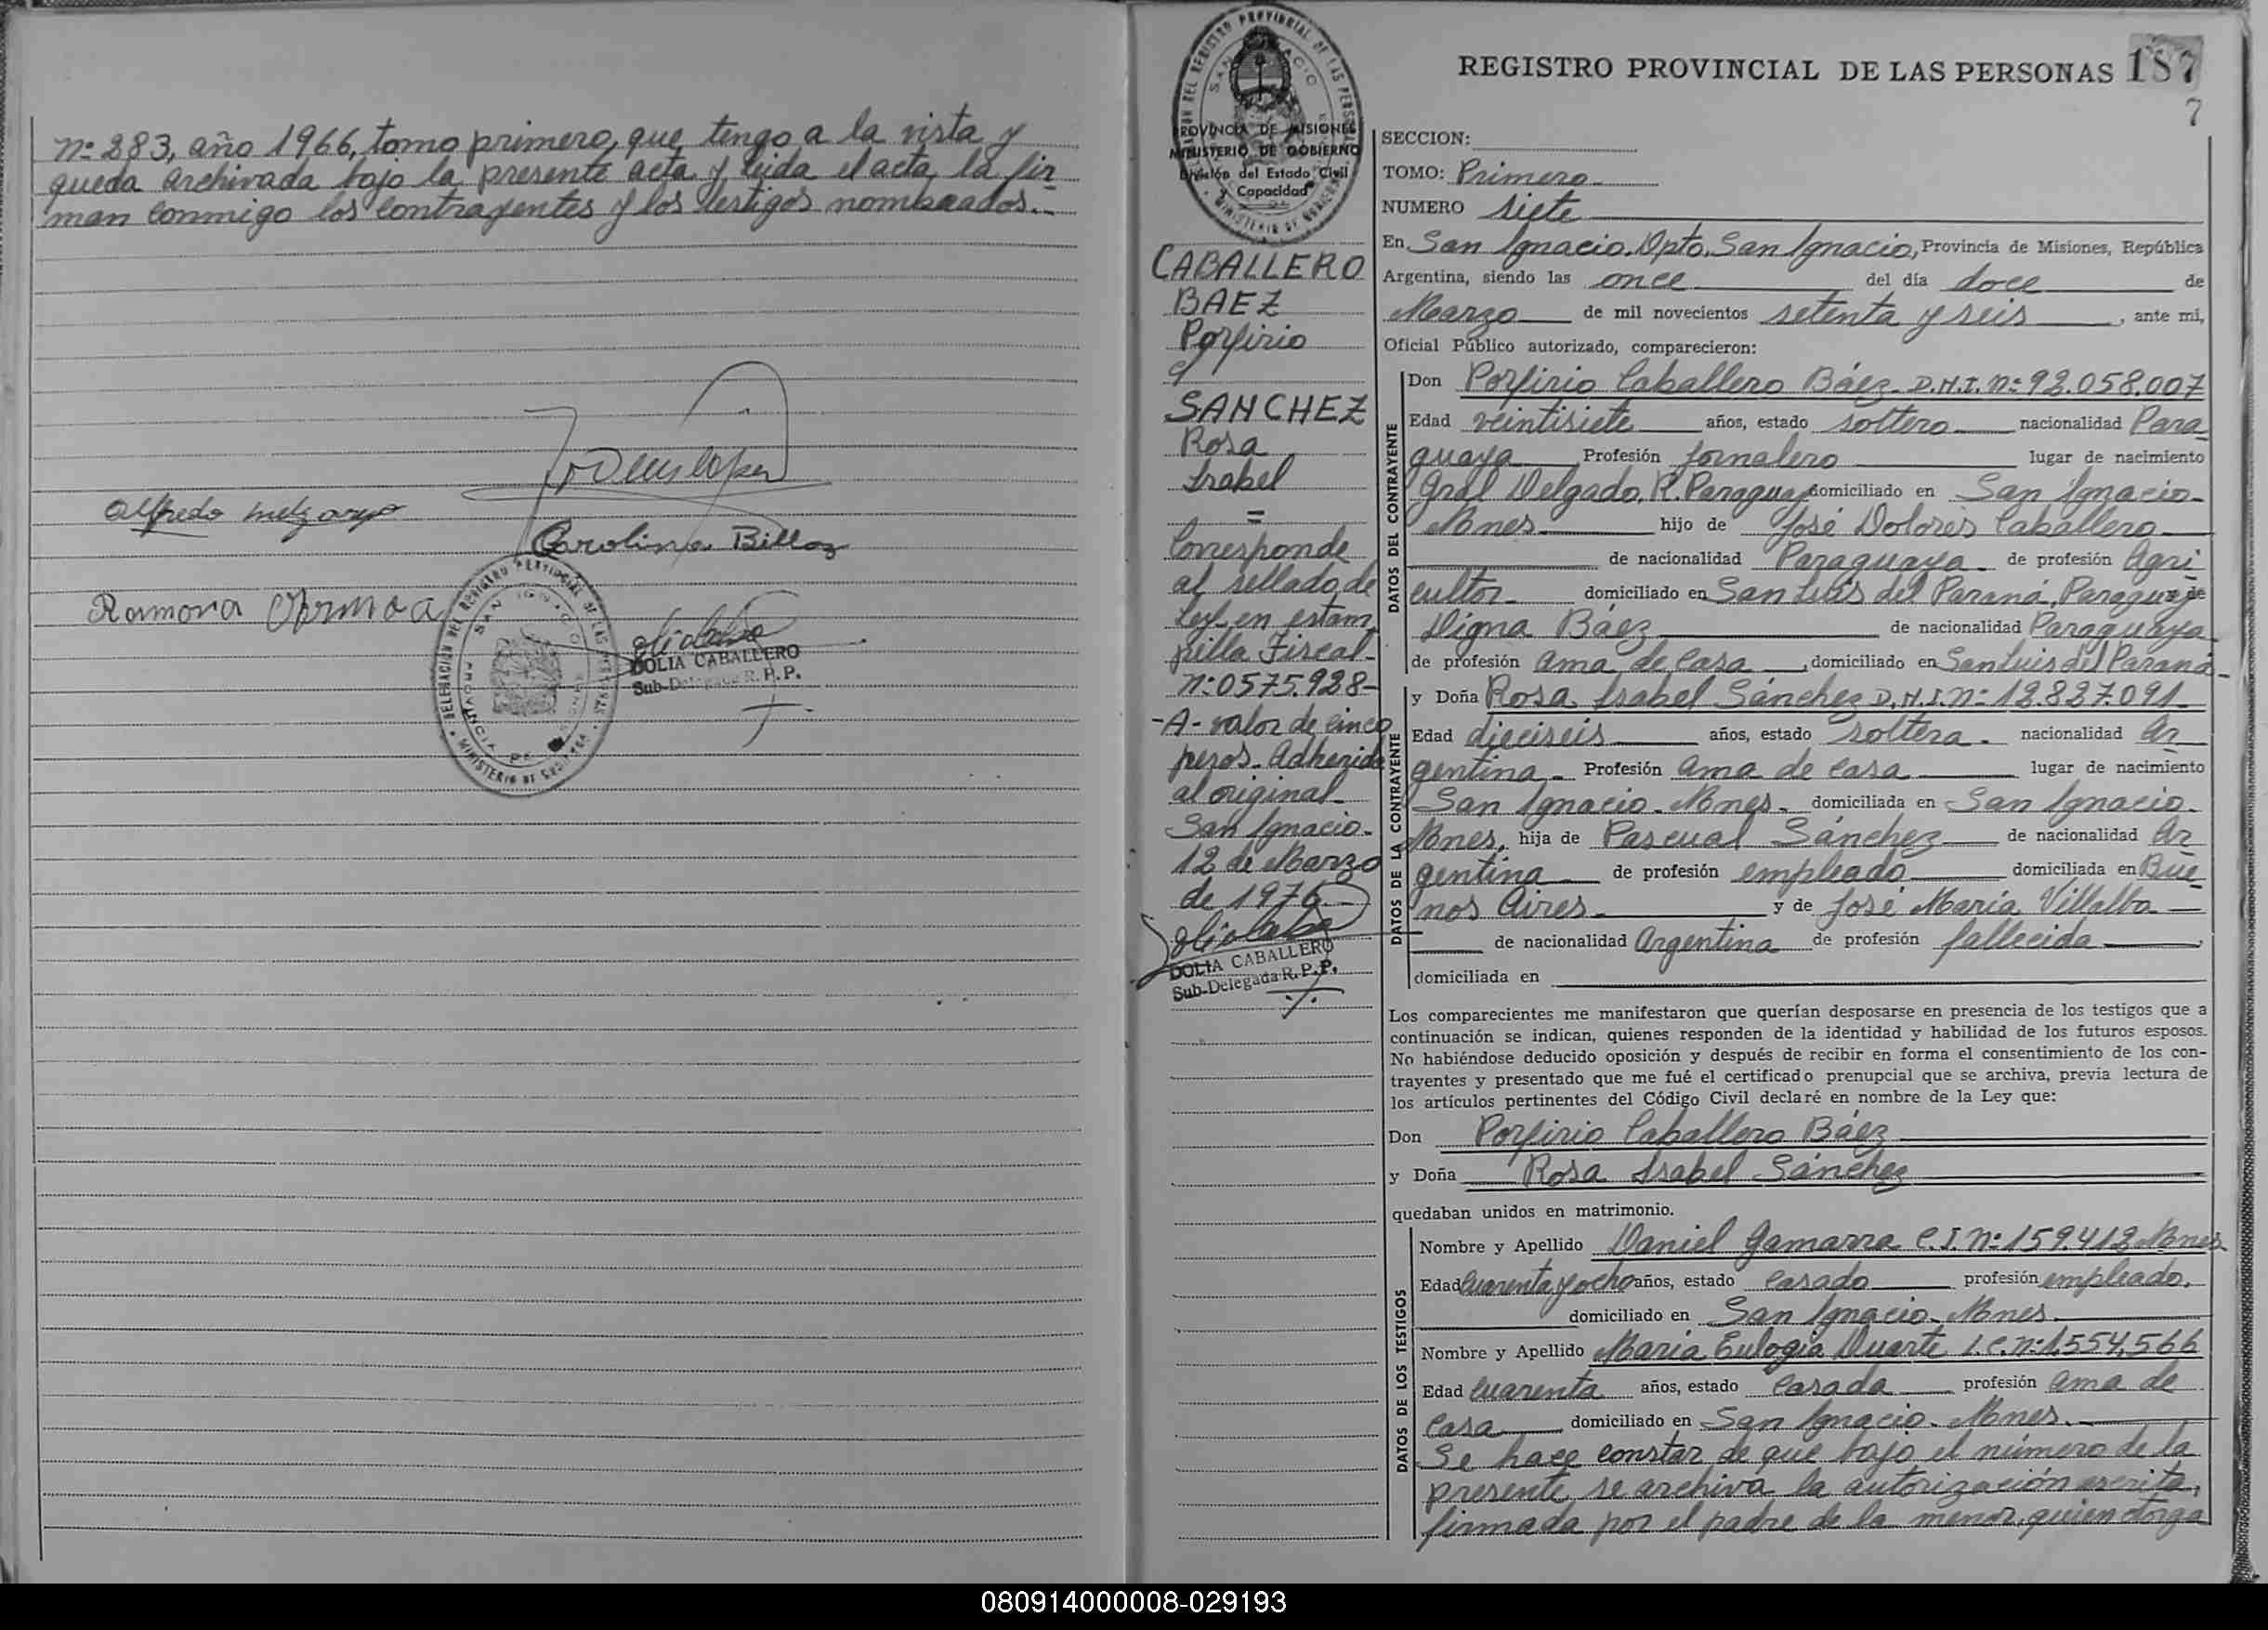 nº 283, año 1966, tomo primero, que tengo a la vista y
queda archivada bajo la presente acta y leida el acta, la fir
man conmigo los contrayentes y los testigos nombrados.-
Alfredo
Carolina
Ramona
DELEGACION DEL REGISTRO PROVINCIAL DE LAS PERSONAS
SAN IGNACIO
PROVINCIA DE MISIONES
MINISTERIO DE GOBIERNO
DOLIA CABALLERO
Sub-Delegada R. P. P.
DELEGACION DEL REGISTRO PROVINCIAL DE LAS PERSONAS
SAN IGNACIO
MINISTERIO DE GOBIERNO
PROVINCIA DE MISIONES
MINISTERIO DE GOBIERNO
División del Estado Civil
y Capacidad
CABALLERO
BAEZ
Porfirio
y
SANCHEZ
Rosa
Isabel
=
Corresponde
al sellado de
Ley en estam
pilla Fiscal-
nº 0575.928-
-A- valor de cinco
pesos. Adherida
al original-
San Ignacio-
12 de Marzo
de 1976.-
DOLIA CABALLERO
Sub-Delegada R. P. P.
REGISTRO PROVINCIAL DE LAS PERSONAS 187
7
SECCION:
TOMO: Primero-
NUMERO siete
En San Ignacio, Dpto. San Ignacio, Provincia de Misiones, República
Argentina, siendo las once del día doce de
Marzo de mil novecientos setenta y seis, ante mi,
Oficial Público autorizado, comparecieron:
DATOS DEL CONTRAYENTE
Don Porfirio Caballero Báez D.N.I. nº 92.058.007
Edad veintisiete años, estado soltero nacionalidad Para
guaya Profesión jornalero lugar de nacimiento
Gral Delgado, R. Paraguay domiciliado en San Ignacio-
Mnes hijo de José Dolores Caballero
de nacionalidad Paraguaya de profesión Agri
cultor domiciliado en San Luis del Paraná, Paraguay y de
Digna Báez de nacionalidad Paraguaya
de profesión ama de casa, domiciliado en San Luis del Paraná-
DATOS DE LA CONTRAYENTE
y Doña Rosa Isabel Sánchez D.N.I. nº 12.827.091
Edad dieciseis años, estado soltera nacionalidad Ar
gentina Profesión ama de casa lugar de nacimiento
San Ignacio-Mnes- domiciliada en San Ignacio-
Mnes, hija de Pascual Sánchez de nacionalidad Ar
gentina de profesión empleado domiciliada en Bue
nos Aires y de José María Villalba
de nacionalidad Argentina de profesión fallecida
domiciliada en
Los comparecientes me manifestaron que querían desposarse en presencia de los testigos que a
continuación se indican, quienes responden de la identidad y habilidad de los futuros esposos.
No habiéndose deducido oposición y después de recibir en forma el consentimiento de los con-
trayentes y presentado que me fué el certificado prenupcial que se archiva, previa lectura de
los artículos pertinentes del Código Civil declaré en nombre de la Ley que:
Don Porfirio Caballero Báez
y Doña Rosa Isabel Sánchez
quedaban unidos en matrimonio.
DATOS DE LOS TESTIGOS
Nombre y Apellido Daniel Gamarra C.I. nº 159.412 Mnes
Edad cuarenta y ocho años, estado casado profesión empleado,
domiciliado en San Ignacio-Mnes.
Nombre y Apellido María Eulogia Duarte L.C. nº 1.554.566
Edad cuarenta años, estado casada profesión ama de
casa domiciliado en San Ignacio-Mnes.
Se hace constar de que bajo el número de la
presente se archiva la autorización escrita,
firmada por el padre de la menor, quien otorga
080914000008-029193